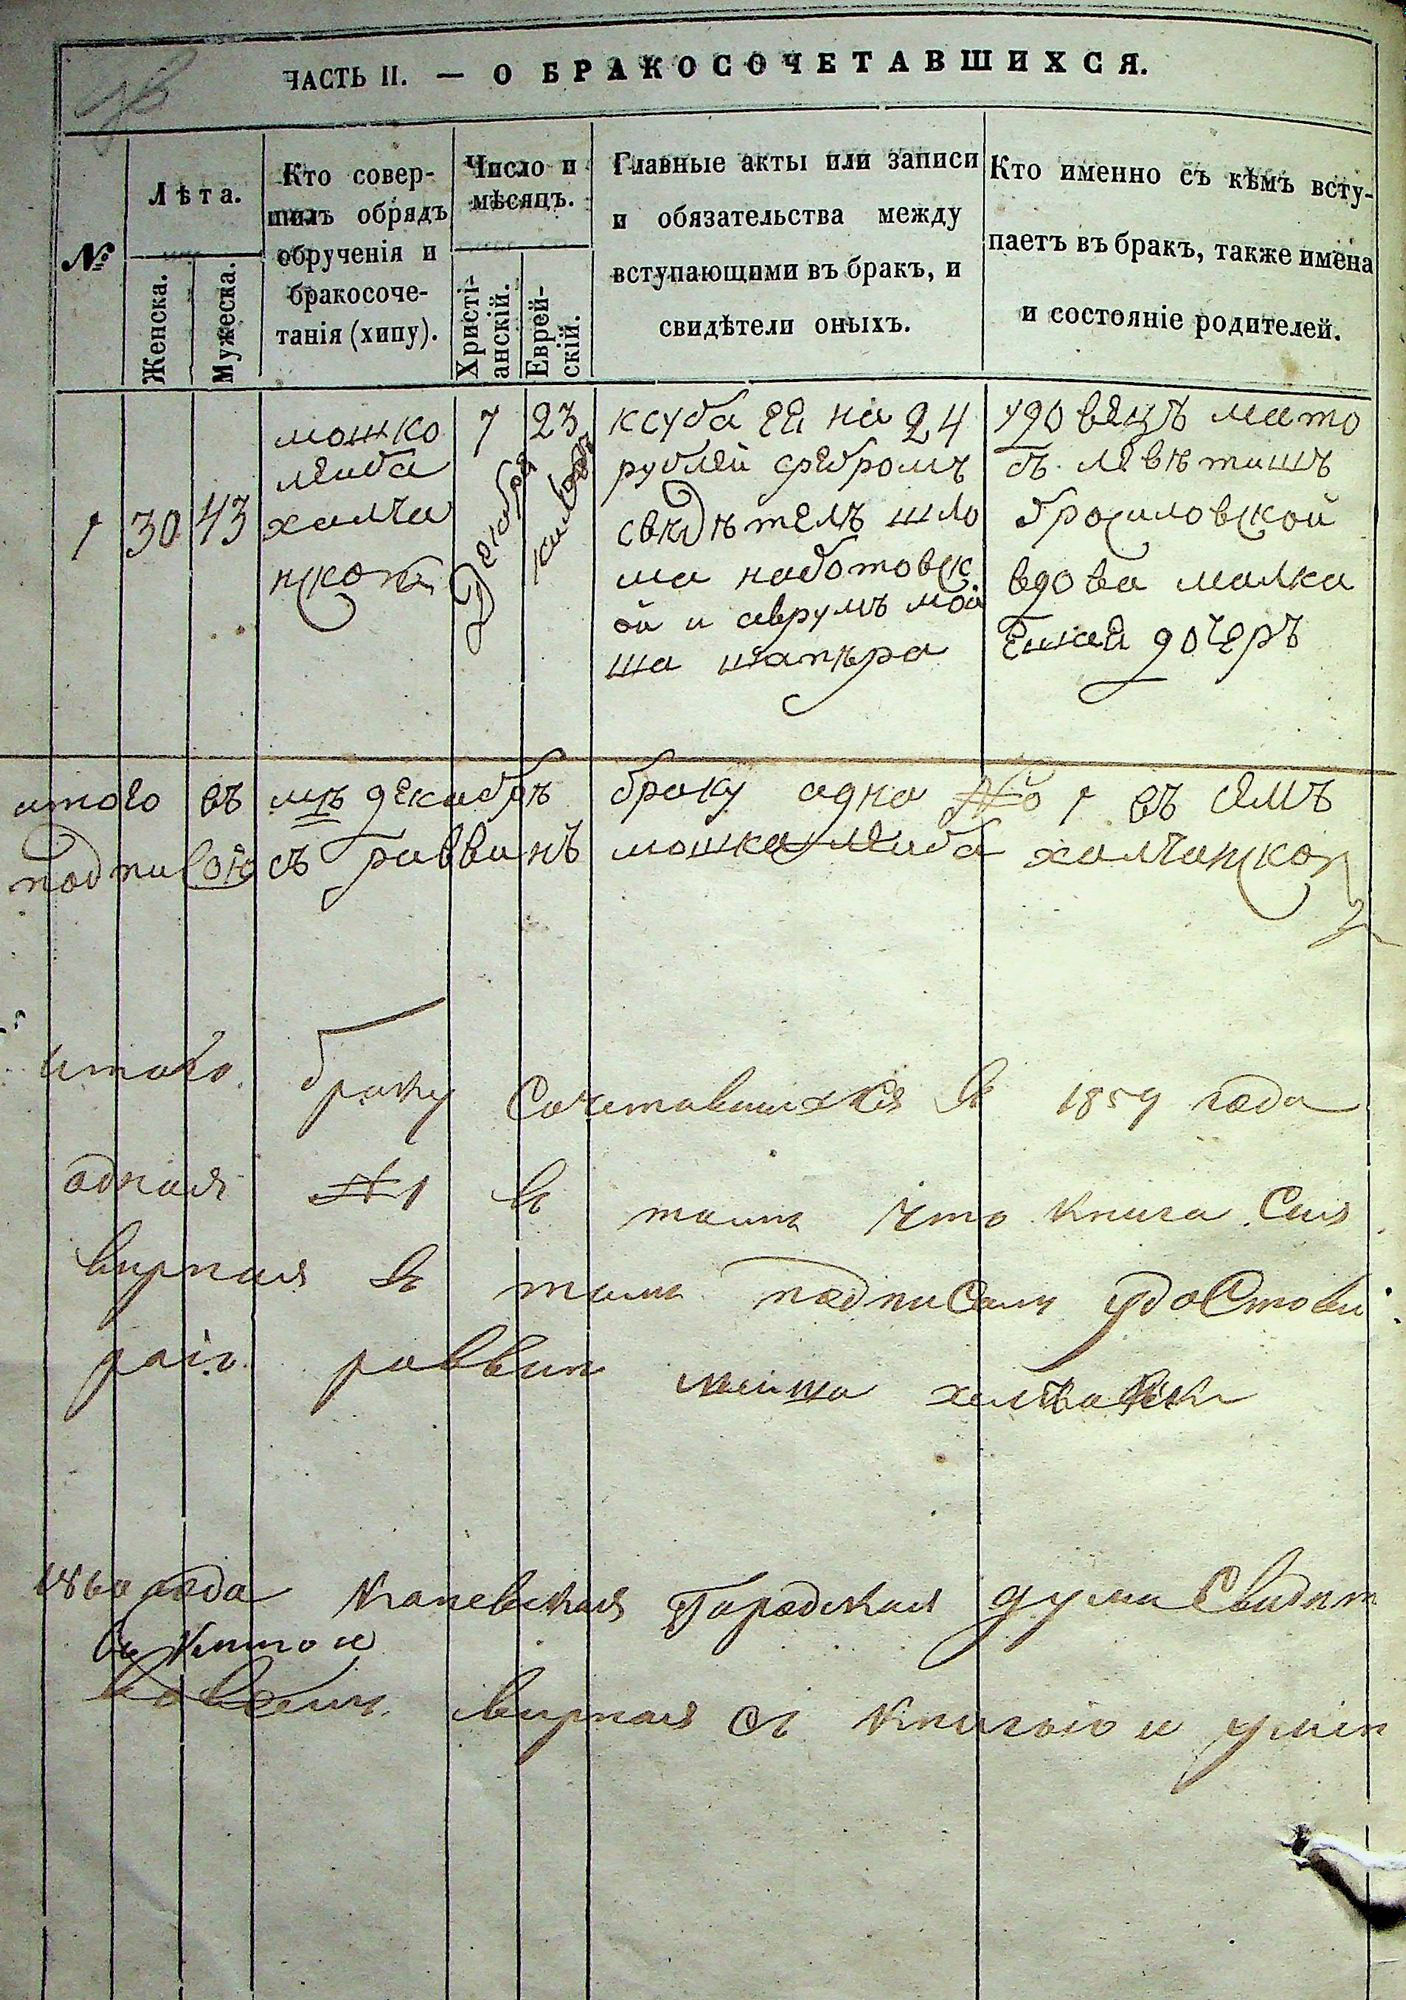 ЧАСТЬ II. — О БРАКОСОЧЕТАВШИХСЯ.
№
Лѣта.
Женска.
Мужеска.
Кто совер-
шилъ обрядъ
обрученія и
бракосоче-
танія (хипу).
Число и
мѣсяцъ.
Христі-
анскій.
Еврей-
скій.
Главные акты или записи
и обязательства между
вступающими въ бракъ, и
свидѣтели оныхъ.
Кто именно съ кѣмъ всту-
паетъ въ бракъ, также имена
и состояніе родителей.
1
30
43
мошко
леиба
халча
нског
7
Декабря
23
ксуба ее на 24
рублей сребромъ
свидѣтелъ шло
ма наботовск
ой и аврумъ мой
ша шапѣра
удовецъ мато
съ
бросиловской
вдова малка
дочеръ
итого въ мцѣ декабрѣ браку адна № 1 въ семъ
подписою съ раввинъ мошка леиба
итого браку Сочетавшихся въ 1859 года
адная № 1 въ томъ что книга Сия
вирная въ томъ подписомъ удостови
раіо раввин
1860 года Каневская Городская дума Свидѣт
вирная Съ книгою и